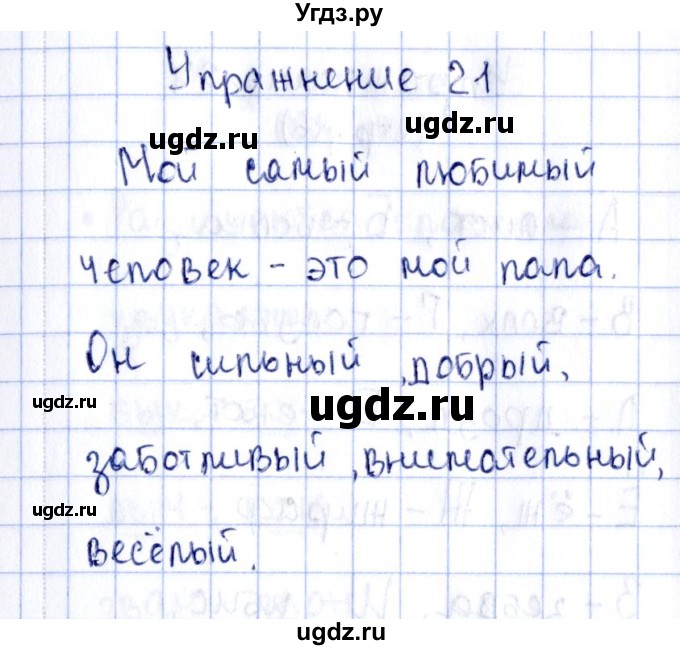 Угдз.ру
Упражнение 21
ugdz.ru ugdz.ru
Мой самый любимый
человек - это мой папа.
Он сильный, добрый,
ugdz.ru ugdz.ru
заботливый, внимательный,
ugdz.ru
весёлый.
ugdz.ru